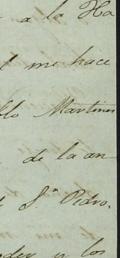 a la Ha
me hace
llo Martines
de la an
Sn Pedro.
y los